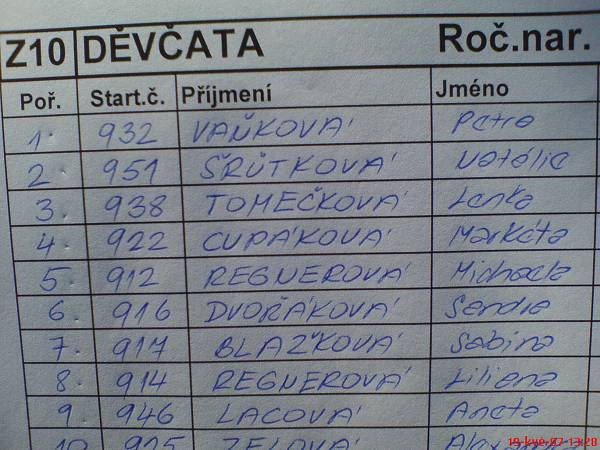 Z10 DĚVČATA Roč.nar.
Poř. Start.č. Příjmení Jméno
1. 932 VAŇKOVÁ Petra
2. 951 ŠRŮTKOVÁ Natálie
3. 938 TOMEČKOVÁ Lenka
4. 922 CUPÁKOVÁ Markéta
5. 912 REGNEROVÁ Michaela
6. 916 DVOŘÁKOVÁ Sandra
7. 917 BLAŽKOVÁ Sabina
8. 914 REGNEROVÁ Liliana
9. 946 LACOVÁ Aneta
10. 925 ZELOVÁ
19-kvě-07 13:28